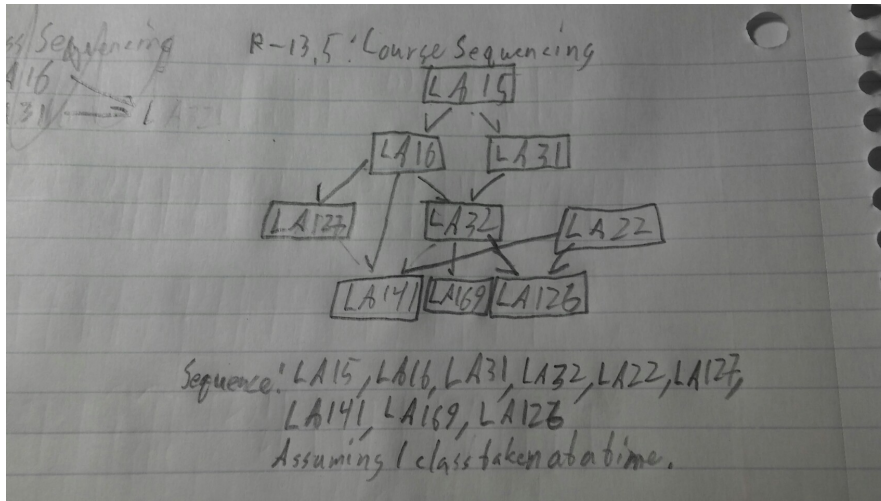 ss Sequencing
A16
A31
R-13.5: Course Sequencing
LA15
LA16 LA31
LA127 LA32 LA22
LA141 LA169 LA126
Sequence: LA15, LA16, LA31, LA32, LA22, LA127,
LA141, LA169, LA126
Assuming 1 class taken at a time.